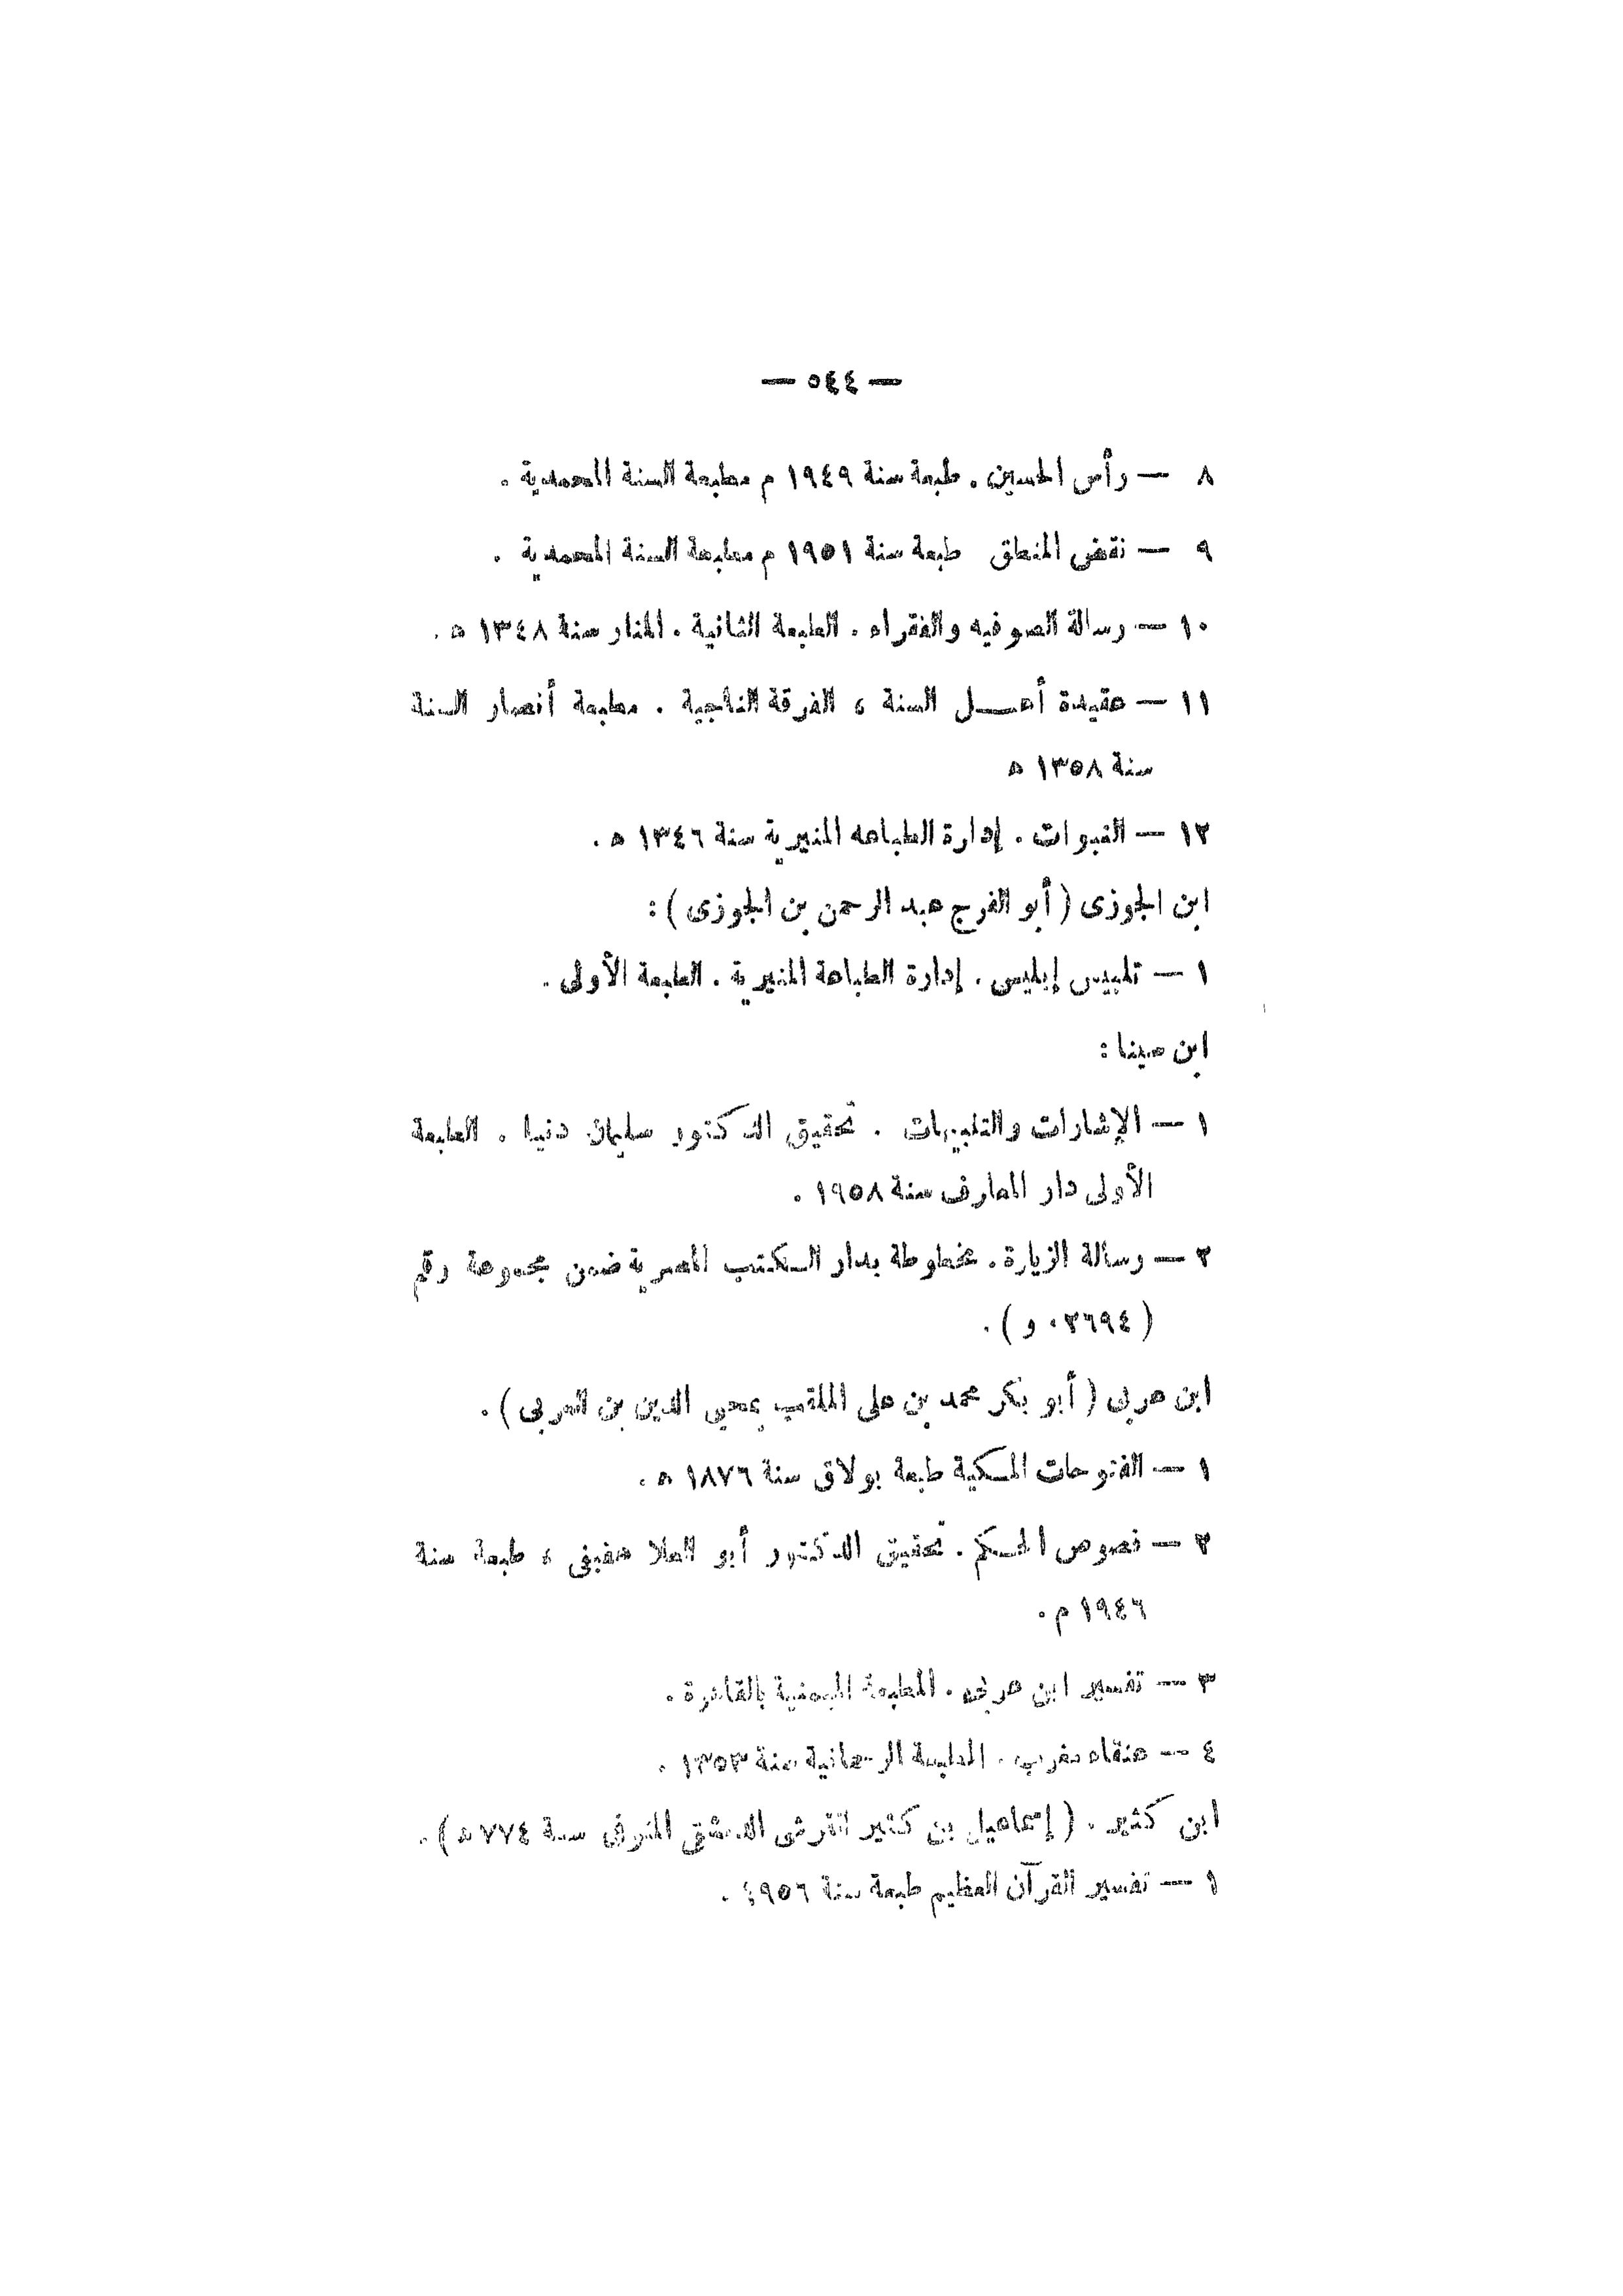 — ٥٤٤ —
٨ — رأس الحسين . طبعة سنة ١٩٤٩ م مطبعة السنة المحمدية .
٩ — نقض المنطق طبعة سنة ١٩٥١ م مطبعة السنة المحمدية .
١٠ — رسالة الصوفيه والفقراء . الطبعة الثانية . المنار سنة ١٣٤٨ ه .
١١ — عقيدة أهل السنة ، الفرقة الناجية . مطبعة أنصار السنة
سنة ١٣٥٨ ه
١٢ — النبوات . إدارة الطباعه المنيرية سنة ١٣٤٦ ه .
ابن الجوزى ( أبو الفرج عبد الرحمن بن الجوزى ) :
١ — تلبيس إبليس . إدارة الطباعة المنيرية . الطبعة الأولى .
ابن سينا :
١ — الإشارات والتنبيهات . تحقيق الدكتور سليمان دنيا . الطبعة
الأولى دار المعارف سنة ١٩٥٨ .
٢ — رسالة الزيارة . مخطوطة بدار الكتب المصرية ضمن مجموعة رقم
( ٢٦٩٤٠ و ) .
ابن عربى ( أبو بكر محمد بن على الملقب بمحيى الدين بن العربى ) .
١ — الفتوحات المكية طبعة بولاق سنة ١٨٧٦ ه .
٢ — فصوص الحكم . تحقيق الدكتور أبو العلا عفيفى ، طبعة سنة
١٩٤٦ م .
٣ — تفسير ابن عربى . المطبعة الميمنية بالقاهرة .
٤ — عنقاء مغرب . المطبعة الرحمانية سنة ١٣٥٣ .
ابن كثير . ( إسماعيل بن كثير القرشى الدمشقى المتوفى سنة ٧٧٤ ه ) .
١ — تفسير القرآن العظيم طبعة سنة ١٩٥٦ .